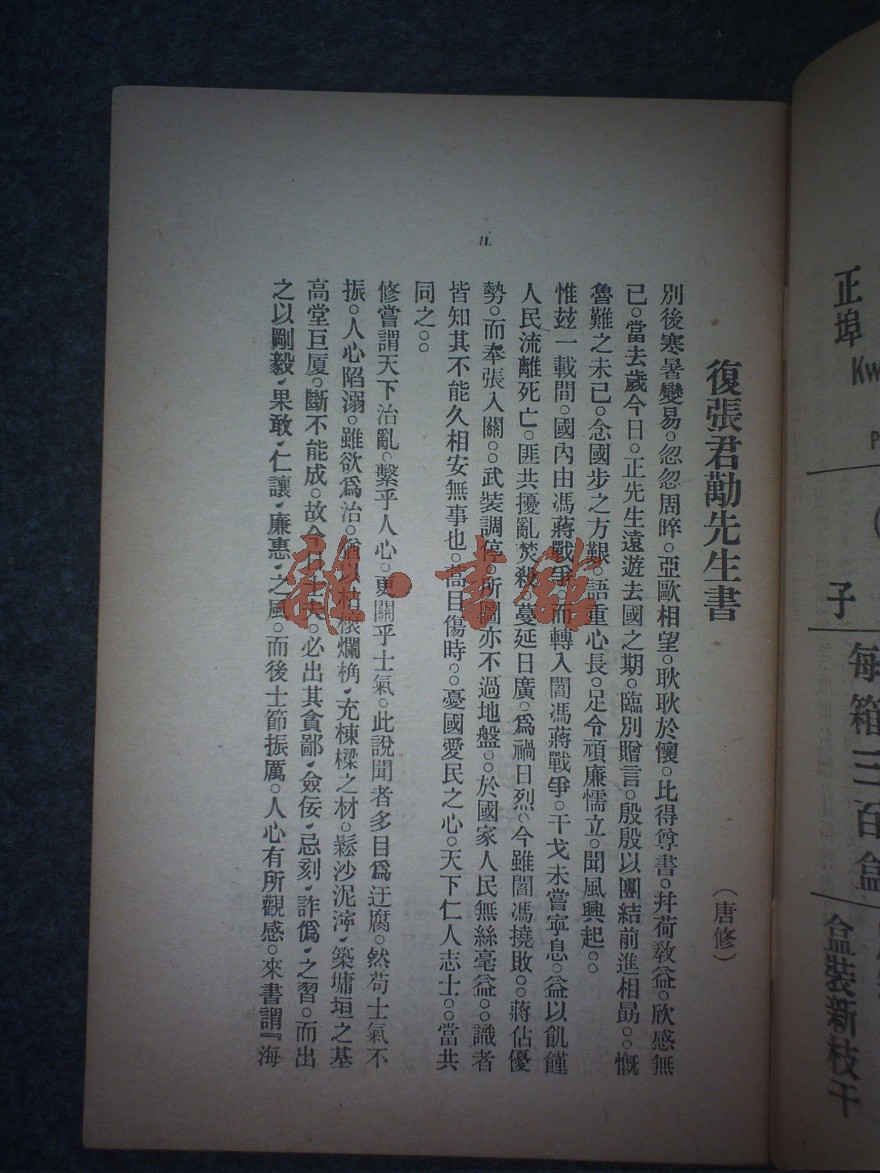 復張君勱先生書
（唐修）
別後寒暑變易。忽忽周晬。亞歐相望。耿耿於懷。比得尊書。幷荷敎益。欣感無
已。當去歲今日。正先生遠遊去國之期。臨別贈言。殷殷以團結前進相勗。。慨
魯難之未已。念國步之方艱。語重心長。足令頑廉懦立。聞風興起。。
惟玆一載間。國內由馮蔣戰爭。而轉入閻馮蔣戰爭。干戈未嘗寧息。益以飢饉
人民流離死亡。匪共擾亂焚殺。蔓延日廣。爲禍日烈。今雖閻馮撓敗。。蔣佔優
勢。而奉張入關。。武裝調停。所圖亦不過地盤。。於國家人民無絲毫益。。識者
皆知其不能久相安無事也。蒿目傷時。。憂國愛民之心。天下仁人志士。。當共
同之。。
修嘗謂天下治亂。繫乎人心。更關乎士氣。此說聞者多目爲迂腐。然苟士氣不
振。人心陷溺。雖欲爲治。猶以枯榱爛桷，充棟樑之材。鬆沙泥滓，築墉垣之基
高堂巨厦。斷不能成。故今日士夫。必出其貪鄙，僉佞，忌刻，詐僞，之習。而出
之以剛毅，果敢，仁讓，廉惠，之風。而後士節振厲。人心有所觀感。來書謂『海
正埠
Kw
P
子
每箱三百盒
盒裝新枝干
雜·書館